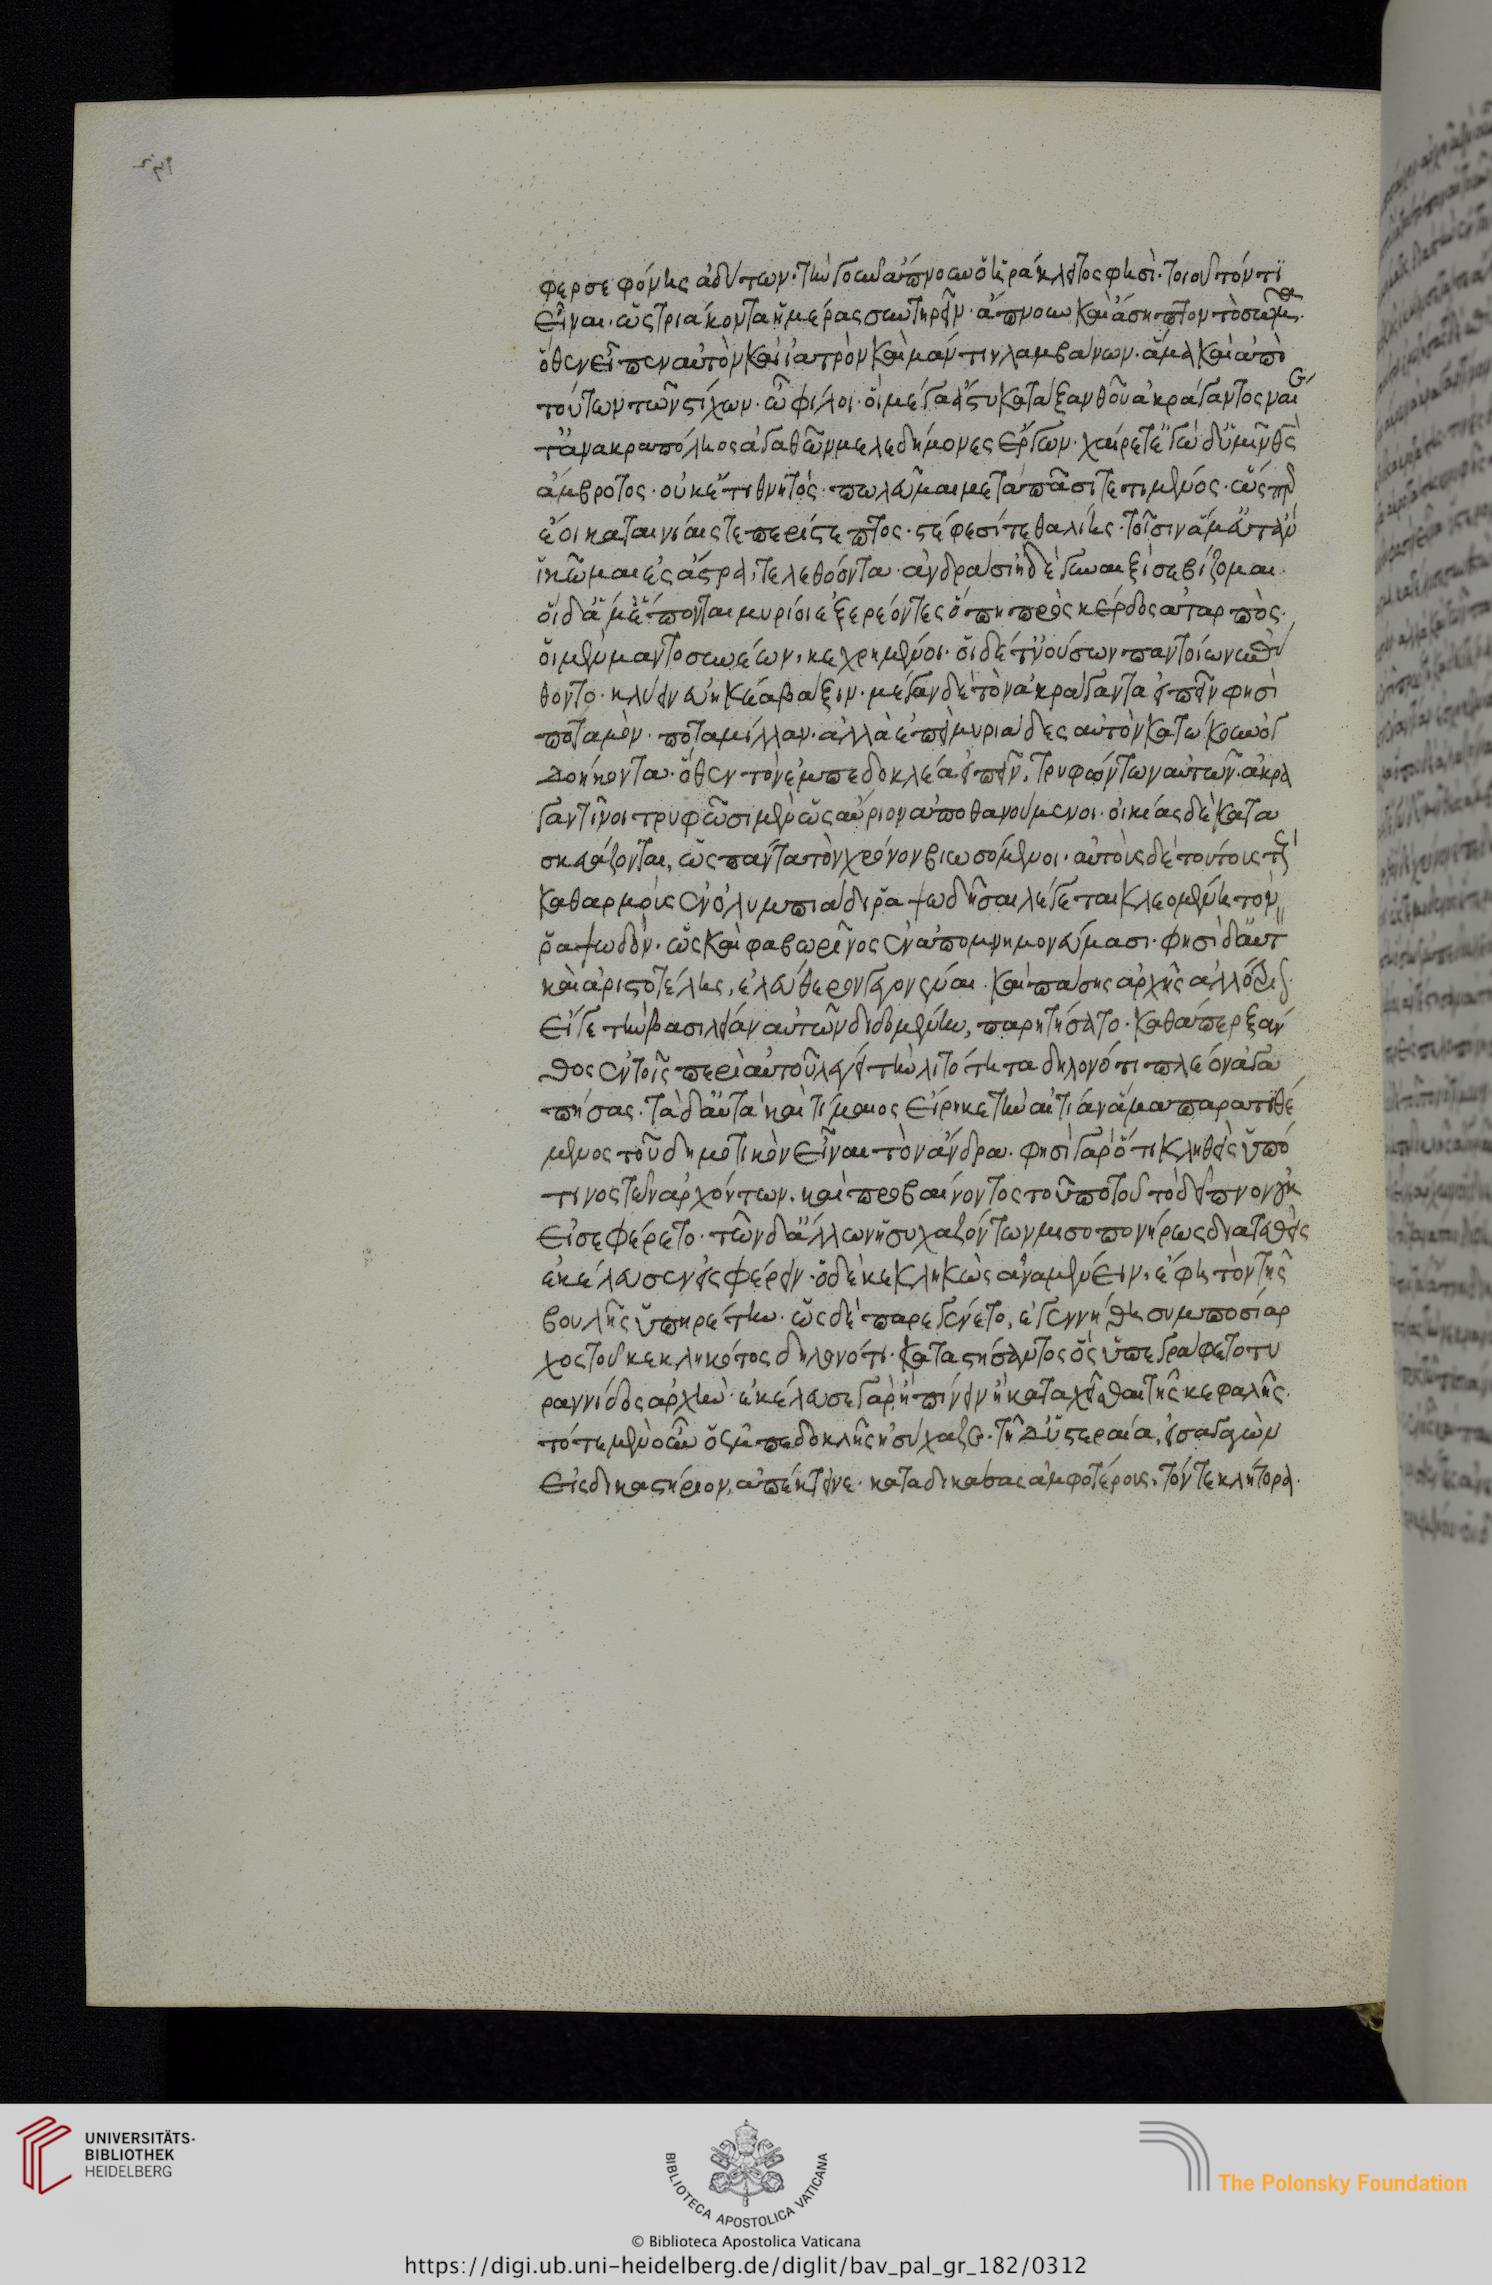 φερσεφόνης ἀδύτων. τὴν γοῦν ἄπνουν ὁ ἡράκλειτος φησὶ. τοιοῦτόν τι
εἶναι. ὡς τριάκοντα ἡμέρας συντηρεῖν. ἄπνουν καὶ ἄσηπτον τὸ σῶμα.
ὅθεν εἶπεν αὐτὸν καὶ ἰατρὸν καὶ μάντιν λαμβάνων. ἅμα καὶ ἀπὸ
τούτων τῶν στίχων. ὦ φίλοι. οἳ μέγα ἄστυ κατὰ ξανθοῦ ἀκράγαντος ναίετ
τ' ἀν' ἄκρα πόληος ἀγαθῶν μελεδήμονες ἔργων. χαίρετ' ἐγὼ δ' ὕμιν θεὸς
ἄμβροτος. οὐκέτι θνητός. πωλεῦμαι μετὰ πᾶσι τετιμένος. ὥσπερ
ἔοικα ταινίαις τε περίστεπτος. στέφεσί τε θαλίης. τοῖσιν ἅμ' εὖτ' ἂν
ἵκωμαι ἐς ἄστεα τηλεθόοντα. ἀνδράσιν ἠδὲ γυναιξὶ σεβίζομαι.
οἱ δ' ἅμ' ἕπονται μυρίοι ἐξερέοντες ὅπη πρὸς κέρδος ἀταρπός.
οἱ μὲν μαντοσυνέων, κεχρημένοι. οἱ δέ τι νούσων παντοίων ἐπύ
θοντο. κλύειν εὐηκέα βάξιν. μέγαν δὲ τὸν ἀκράγαντα εἰπεῖν φησὶ
ποταμὸν. ποταμίλλαν. ἀλλὰ ἐπεὶ μυριάδες αὐτὸν κατώκουν ὀγ
δοήκοντα. ὅθεν τὸν ἐμπεδοκλέα εἰπεῖν, τρυφώντων αὐτῶν. ἀκρα
γαντῖνοι τρυφῶσι μὲν ὡς αὔριον ἀποθανούμενοι. οἰκίας δὲ κατα
σκευάζονται, ὡς πάντα τὸν χρόνον βιωσόμενοι. αὐτοὺς δὲ τούτους τοὺς
καθαρμοὺς ἐν ὀλυμπιάδι ῥαψωδῆσαι λέγεται κλεομένη τὸν
ῥαψωδόν. ὡς καὶ φαβωρῖνος ἐν ἀπομνημονεύμασι. φησὶ δ' αὐτ
καὶ ἀριστοτέλης, ἐλεύθερον γεγονέναι. καὶ πάσης ἀρχῆς ἀλλότριον.
εἴγε τὴν βασιλείαν αὐτῶν διδομένην, παρητήσατο. καθάπερ ξάν
θος ἐν τοῖς περὶ αὐτοῦ λέγει τὴν λιτότητα δηλονότι πλέον ἀγα
πήσας. τὰ δ' αὐτὰ καὶ τίμαιος εἴρηκε τὴν αἰτίαν ἅμα παρατιθέ
μενος τοῦ δημοτικὸν εἶναι τὸν ἄνδρα. φησὶ γὰρ ὅτι κληθεὶς ὑπό
τινος τῶν ἀρχόντων. καὶ προβαίνοντος τοῦ πότου τὸ δεῖπνον οὐκ
εἰσεφέρετο. τῶν δ' ἄλλων ἡσυχαζόντων μισοπονήρως διατεθεὶς
ἐκέλευσεν εἰσφέρειν. ὁ δὲ κεκληκὼς ἀναμένειν, ἔφη τὸν τῆς
βουλῆς ὑπηρέτην. ὡς δὲ παρεγένετο, ἐγεννήθη συμποσίαρ
χος τοῦ κεκληκότος δηλονότι. καταστήσαντος ὃς ὑπεγράφετο τυ
ραννίδος ἀρχὴν. ἐκέλευσε γὰρ ἢ πίνειν ἢ καταχεῖσθαι τῆς κεφαλῆς.
τότε μὲν οὖν ὁ ἐμπεδοκλῆς ἡσύχαζε. τῇ δ' ὑστεραία, εἰσαγαγὼν
εἰς δικαστήριον, ἀπέκτεινε. καταδικάσας ἀμφοτέρους, τόν τε κλήτορα.
UNIVERSITÄTS-
BIBLIOTHEK
HEIDELBERG
BIBLIOTECA APOSTOLICA VATICANA
The Polonsky Foundation
© Biblioteca Apostolica Vaticana
https://digi.ub.uni-heidelberg.de/diglit/bav_pal_gr_182/0312